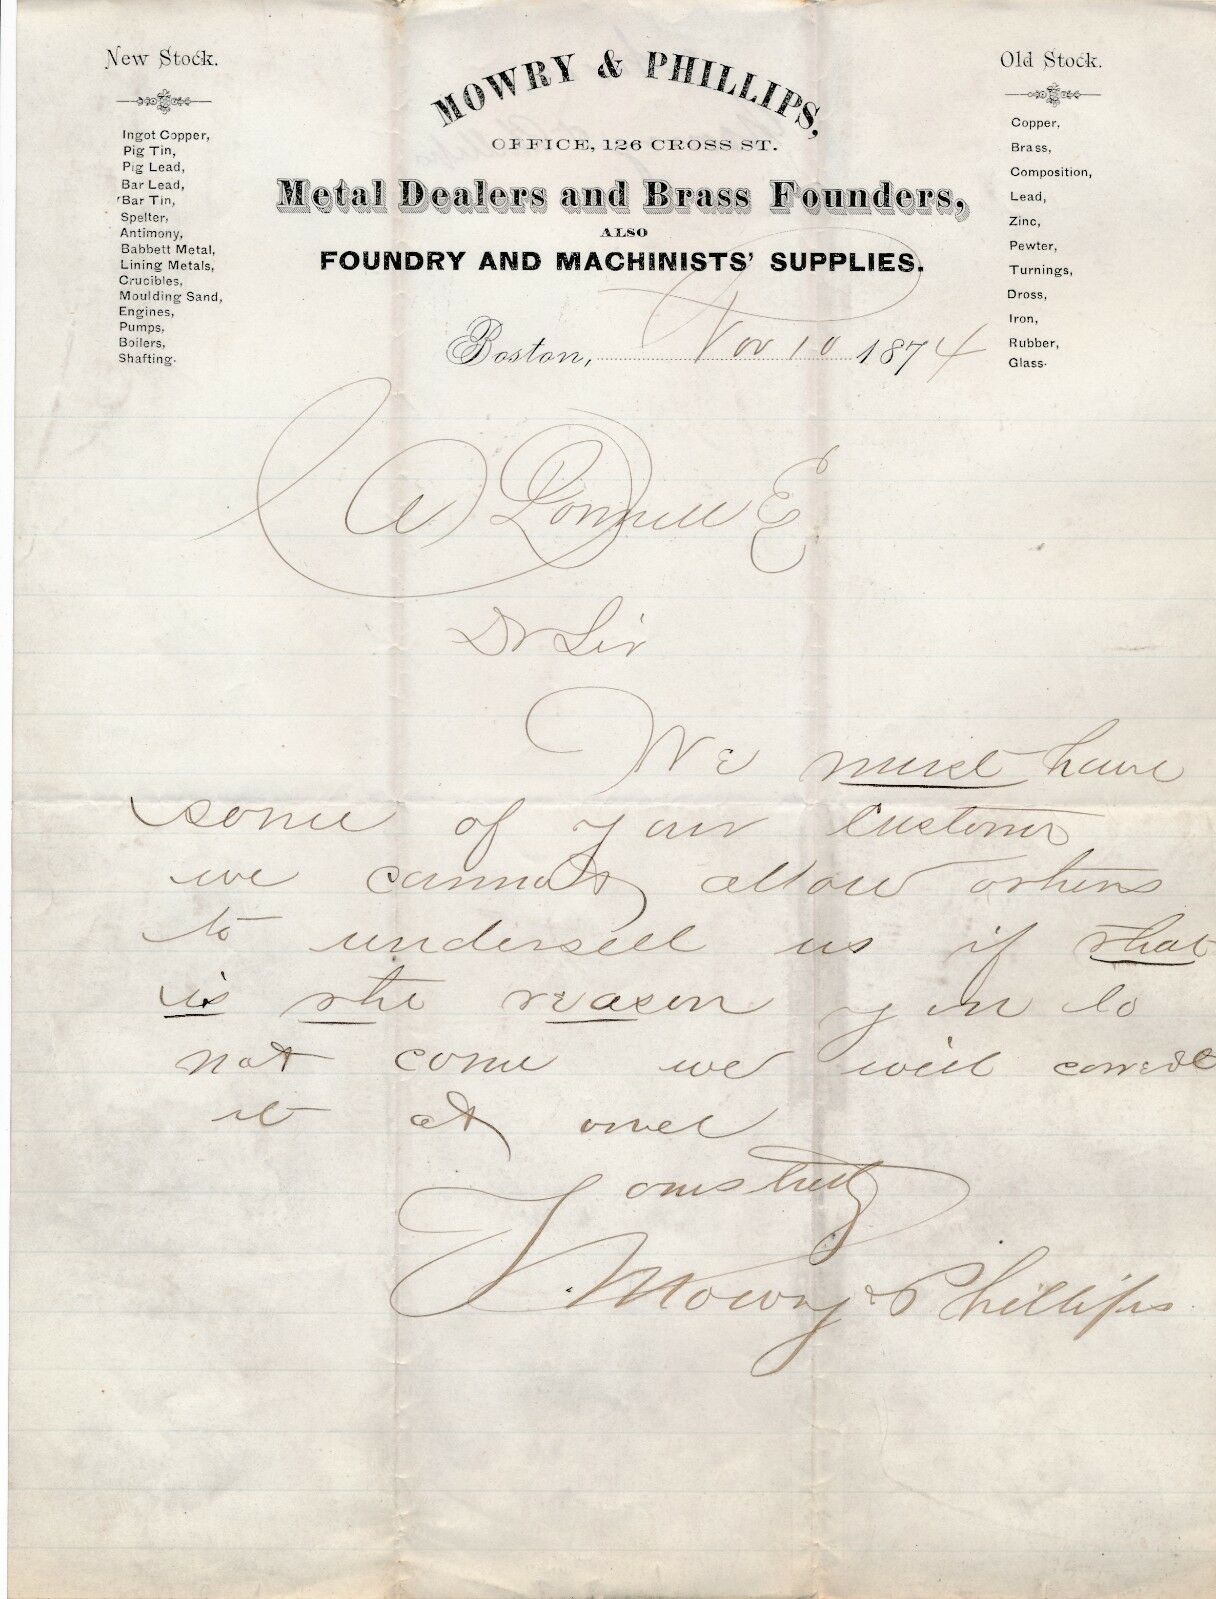 New Stock.
Ingot Copper,
Pig Tin,
Pig Lead,
Bar Lead,
Bar Tin,
Spelter,
Antimony,
Babbett Metal,
Lining Metals,
Crucibles,
Moulding Sand,
Engines,
Pumps,
Boilers,
Shafting.
MOWRY & PHILLIPS,
OFFICE, 126 CROSS ST.
Metal Dealers and Brass Founders,
ALSO
FOUNDRY AND MACHINISTS' SUPPLIES.
Boston, Nov 10 1874
Old Stock.
Copper,
Brass,
Composition,
Lead,
Zinc,
Pewter,
Turnings,
Dross,
Iron,
Rubber,
Glass.
Dr Sir
We must have
some of your Custom
we cannot allow others
to undersell us if that
is the reason you do
not come we will correct
it at once
Yours truly
Mowry & Phillips